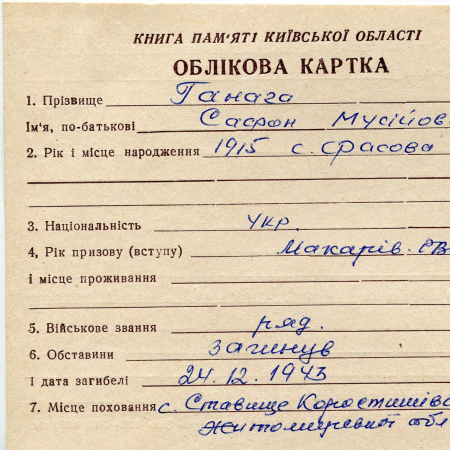 КНИГА ПАМ'ЯТІ КИЇВСЬКОЇ ОБЛАСТІ
ОБЛІКОВА КАРТКА
1. Прізвище Ганага
Ім'я, по-батькові Сафон Мусійов
2. Рік і місце народження 1915 с. Фасова
3. Національність укр.
4, Рік призову (вступу) Макарів. РВ
і місце проживання
5. Військове звання ряд.
6. Обставини загинув
і дата загибелі 24.12.1943
7. Місце поховання с. Ставище Коростишівс
Житомирської обл